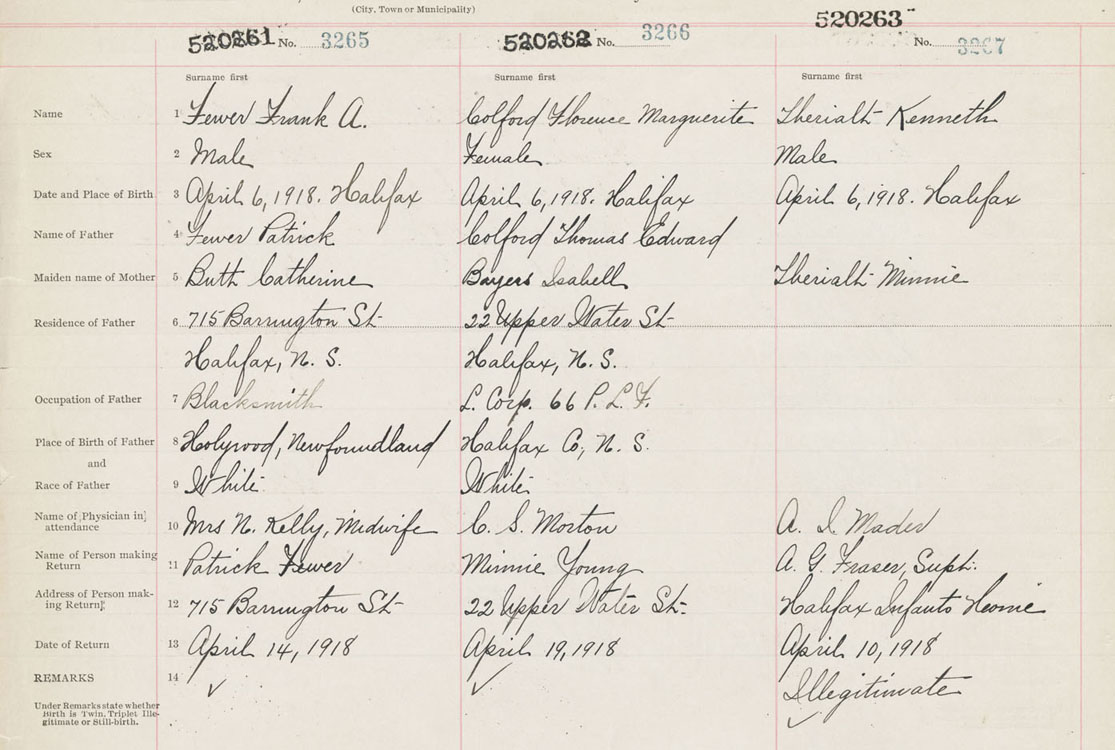 (City, Town or Municipality)
520261 No. 3265 520262 No. 3266 520263 No. 3267
Surname first Surname first Surname first
Name 1 Fewer Frank A. Colford Florence Marguerite Therialt Kenneth
Sex 2 Male Female Male
Date and Place of Birth 3 April 6, 1918. Halifax April 6, 1918. Halifax April 6, 1918. Halifax
Name of Father 4 Fewer Patrick Colford Thomas Edward
Maiden name of Mother 5 Butt Catherine Bayers Isabell Therialt Minnie
Residence of Father 6 715 Barrington St 22 Upper Water St
Halifax, N. S. Halifax, N. S.
Occupation of Father 7 Blacksmith L. Corp. 66 P. L. F.
Place of Birth of Father 8 Holyrood, Newfoundland Halifax Co, N. S.
and
Race of Father 9 White White
Name of [Physician in]
attendance 10 Mrs N. Kelly, Midwife C. S. Morton A. I. Mader
Name of Person making
Return 11 Patrick Fewer Minnie Young A. G. Fraser, Supt.
Address of Person mak-
ing Return 12 715 Barrington St 22 Upper Water St. Halifax Infants Home
Date of Return 13 April 14, 1918 April 19, 1918 April 10, 1918
REMARKS 14 ✓ ✓ Illegitimate
Under Remarks state whether
Birth is Twin, Triplet Ille-
gitimate or Still-birth. ✓